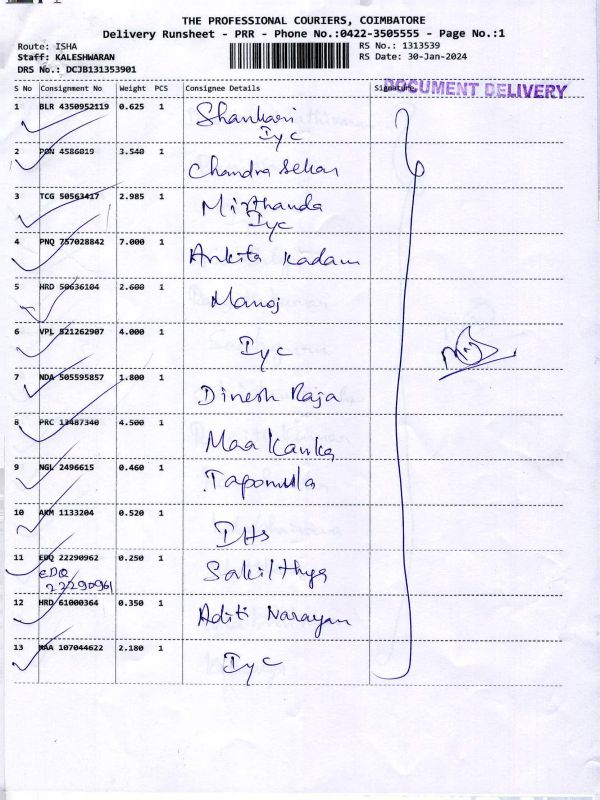 THE PROFESSIONAL COURIERS, COIMBATORE
Delivery Runsheet - PRR - Phone No.:0422-3505555 - Page No.:1
Route: ISHA RS No.: 1313539
Staff: KALESHWARAN RS Date: 30-Jan-2024
DRS No.: DCJB131353901
DOCUMENT DELIVERY
S No Consignment No Weight PCS Consignee Details Signature
1 BLR 4350952119 0.625 1 Shankari
Iyc
2 PON 4586019 3.540 1 Chandra sekar
3 TCG 50563417 2.985 1 Mirthanda
Iyc
4 PNQ 757028842 7.000 1 Ankita Kadam
5 HRD 50636104 2.600 1 Manoj
6 VPL 521262907 4.000 1 Iyc
7 NDA 505595857 1.800 1 Dinesh Raja
8 PRC 13487340 4.500 1 Maa Kanka
9 NGL 2496615 0.460 1 Tapomula
10 AKM 1133204 0.520 1 IHs
11 EDQ 22290962 0.250 1
EDQ
22290961
12 HRD 61000364 0.350 1 Aditi Narayan
13 MAA 107044622 2.180 1 Iyc